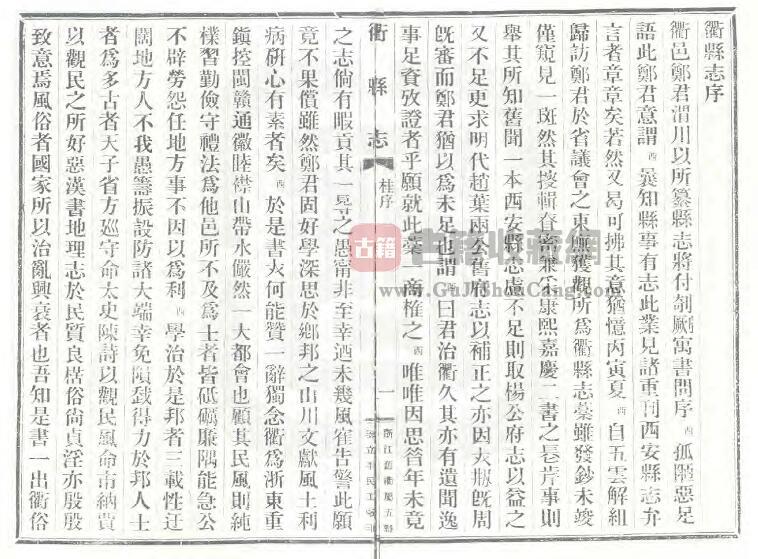 衢縣志序
衢邑鄭君渭川以所纂縣志將付剞劂寓書問序西孤陋惡足
語此鄭君意謂西曩知縣事有志此業見諸重刊西安縣志弁
言者章章矣若然又曷可拂其意猶憶丙寅夏西自五雲解組
歸訪鄭君於省議會之東廡獲觀所為衢縣志藁雖發鈔未竣
僅窺見一斑然其搜輯
康熙嘉慶二書之長肖事則
舉其所知舊聞一本西安縣志慮不足則取楊公府志以益之
又不足更求明代趙葉兩公舊府志以補正之亦因大瓶既周
既審而鄭君猶以為未足也謂西曰君治衢久其亦有遺聞逸
事足資攷證者乎願就此藁一商榷之西唯唯因思曾年未竟
衢縣志
桂序
一
浙江舊衢屬五縣
之志倘有暇貢其一得之愚甯非至幸迺未幾風隺告警此願
竟不果償雖然鄭君固好學深思於鄉邦之山川文獻風土利
病研心有素者矣西於是書夫何能贊一辭獨念衢為浙東重
鎮控閩贛通徽睦襟山帶水儼然一大都會也顧其民風則純
樸習勤儉守禮法為他邑所不及為士者皆砥礪廉隅能急公
不辭勞怨任地方事不因以為利西學治於是邦者三載性迂
闊地方人不我愚籌振設防諸大端幸免隕越得力於邦人士
者為多古者天子省方巡守命太史陳詩以觀民風命市納賈
以觀民之所好惡漢書地理志於民質良楛俗尚貞淫亦殷殷
致意焉風俗者國家所以治亂興衰者也吾知是書一出衢俗
古籍
古籍收藏網
www.GuJiShouCang.com